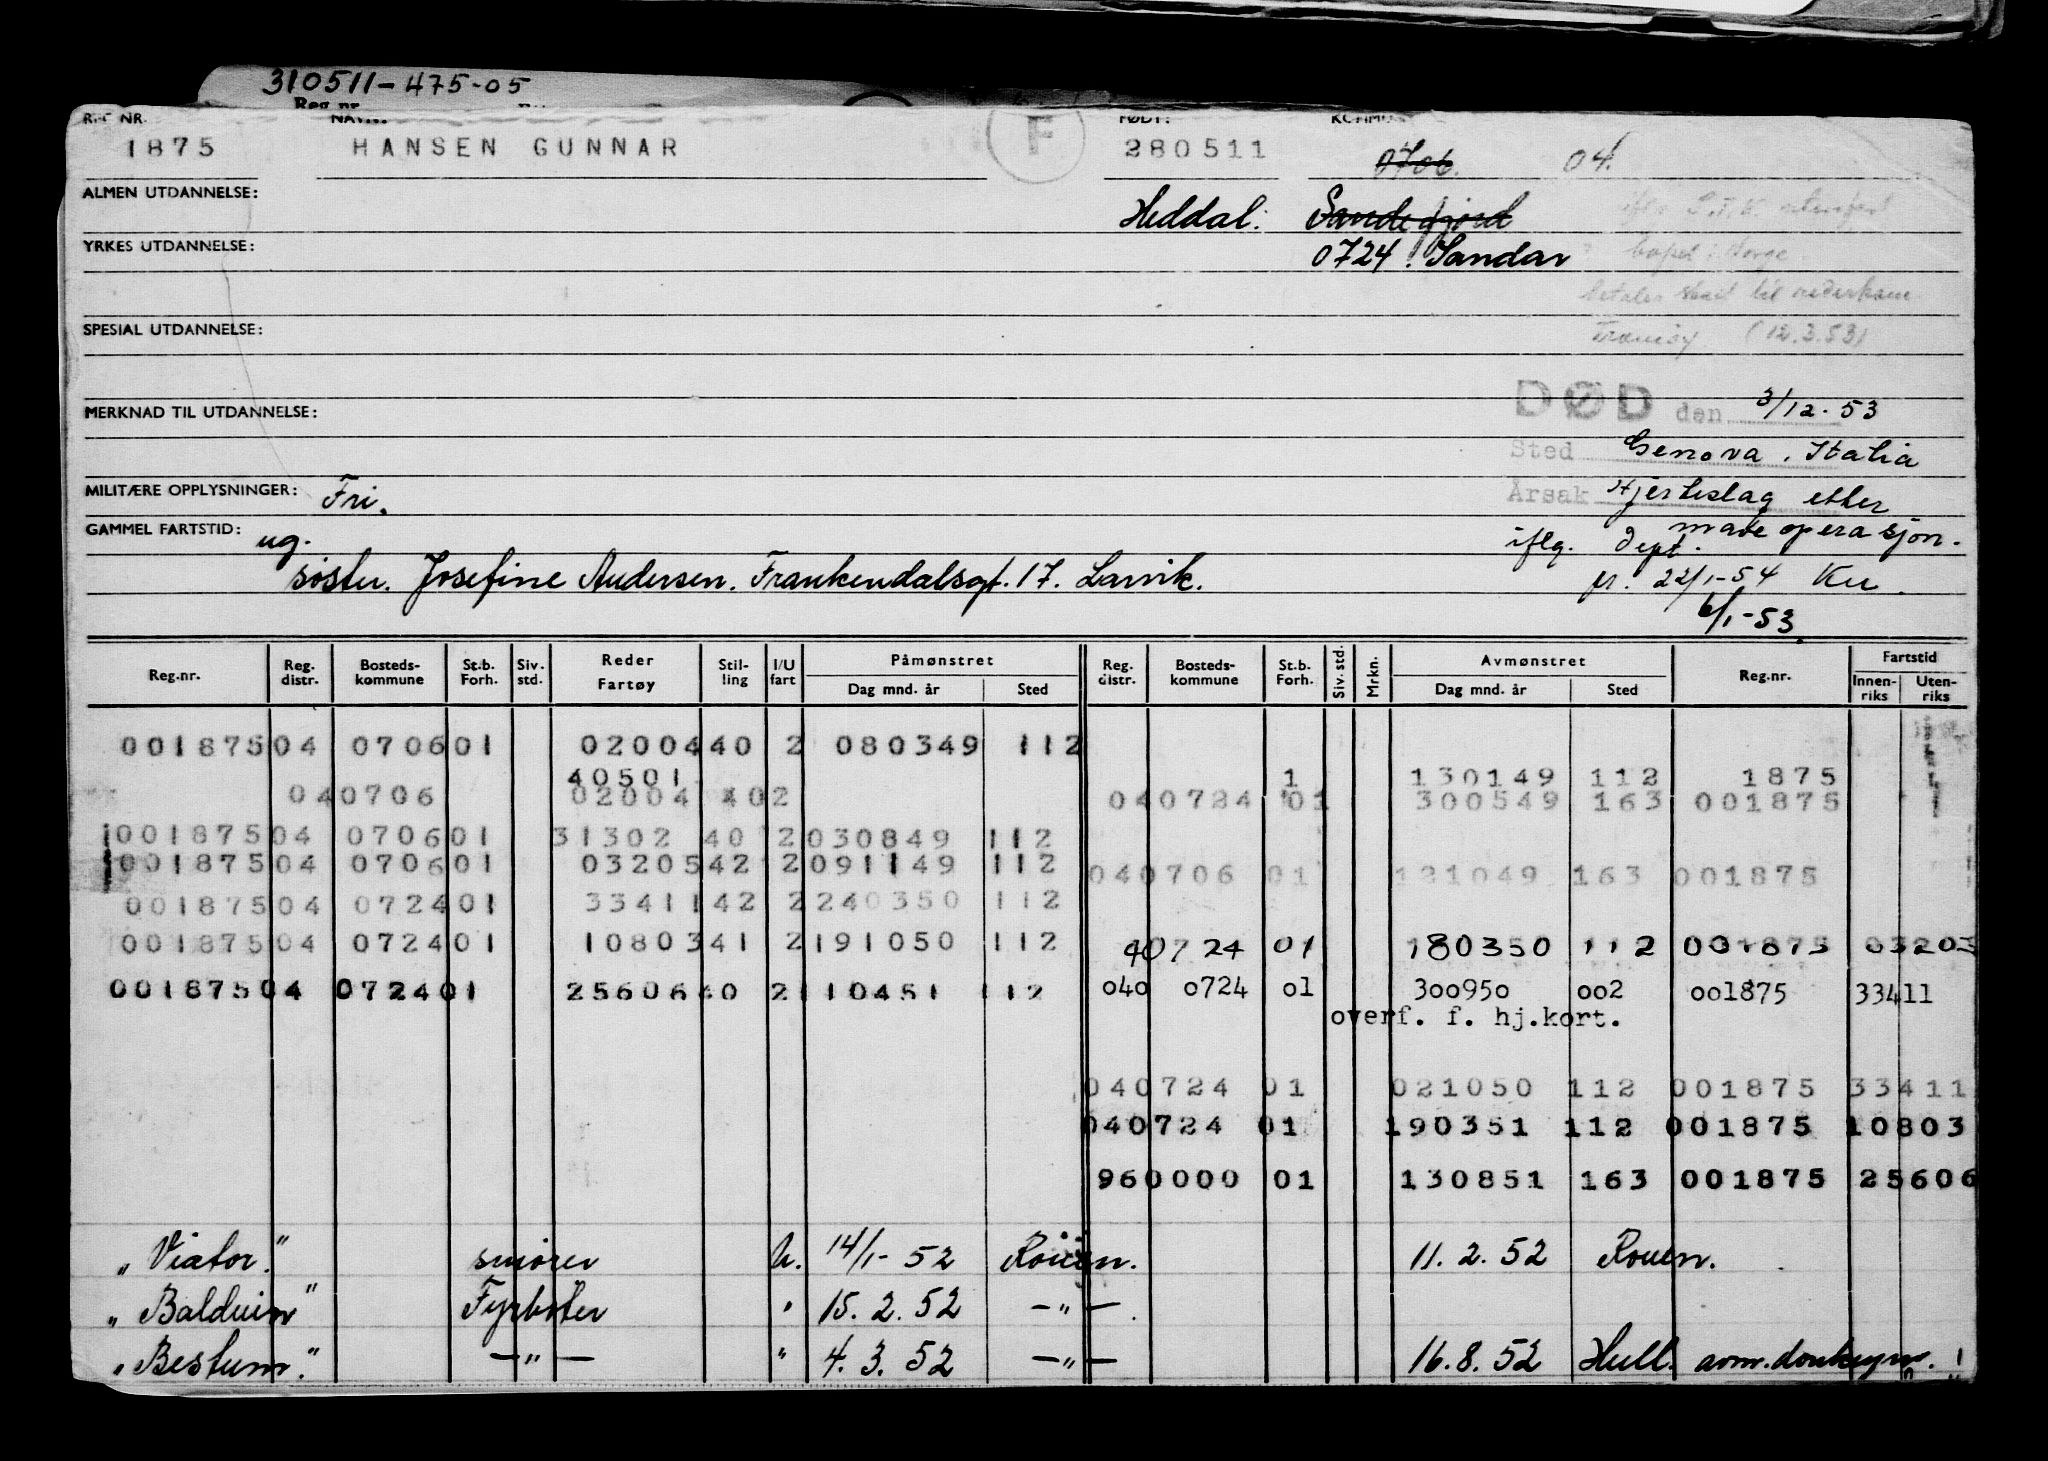 310511-475-05
Reg.nr.
REG NR. NAVN: FØDT: KOMMU
1875 HANSEN GUNNAR F 280511 0706. 04.
ALMEN UTDANNELSE: Heddal. Sandefjord
YRKES UTDANNELSE: 0724. Sandar
Norge
betaler skatt til
(12.3.53)
SPESIAL UTDANNELSE:
MERKNAD TIL UTDANNELSE: DØD den 3/12-53
Sted Genova. Italia
MILITÆRE OPPLYSNINGER: Fri. Årsak Hjerteslag etter
GAMMEL FARTSTID: ug. mave operasjon.
iflg. dept.
søster. Josefine Andersen. Frankendalsgt. 17. Larvik. fr. 22/1-54 Ku.
6/1-53.
Reg.nr. Reg. distr. Bosteds-kommune St.b. Forh. Siv. std. Reder Fartøy Stil-ling I/U fart Påmønstret Dag mnd. år Sted Reg. distr. Bosteds-kommune St.b. Forh. Siv. std. Mrkn. Avmønstret Dag mnd. år Sted Reg.nr. Fartstid Innen-riks Uten-riks
001875 04 0706 01 02004 40 2 080349 112
40501 1 130149 112 1875
04 0706 02004 40 2 040724 01 300549 163 001875
001875 04 0706 01 31302 40 2 030849 112
001875 04 0706 01 03205 42 2 091149 112 040706 01 121049 163 001875
001875 04 0724 01 33411 42 2 240350 112
001875 04 0724 01 10803 41 2 191050 112 40724 01 180350 112 001875 03203
001875 04 0724 01 25606 40 2 110451 112 040 0724 01 300950 002 001875 33411
overf. f. hj.kort.
040724 01 021050 112 001875 33411
040724 01 190351 112 001875 10803
960000 01 130851 163 001875 25606
"Viator." smører U. 14/1-52 Rouen. 11.2.52 Rouen.
"Balduin" Fyrbøter " 15.2.52 —"—
"Bestum." —"— " 4.3.52 —"— 16.8.52 Hull.